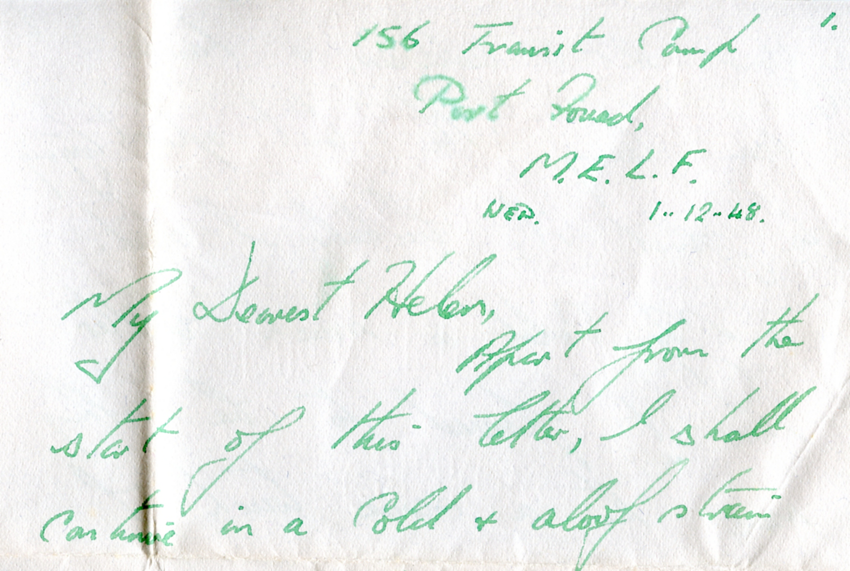 1.
156 Transit Camp
Port Fouad,
M.E.L.F.
WED. 1-12-48.
My Dearest Helen,
Apart from the
start of this letter, I shall
continue in a cold & aloof strain